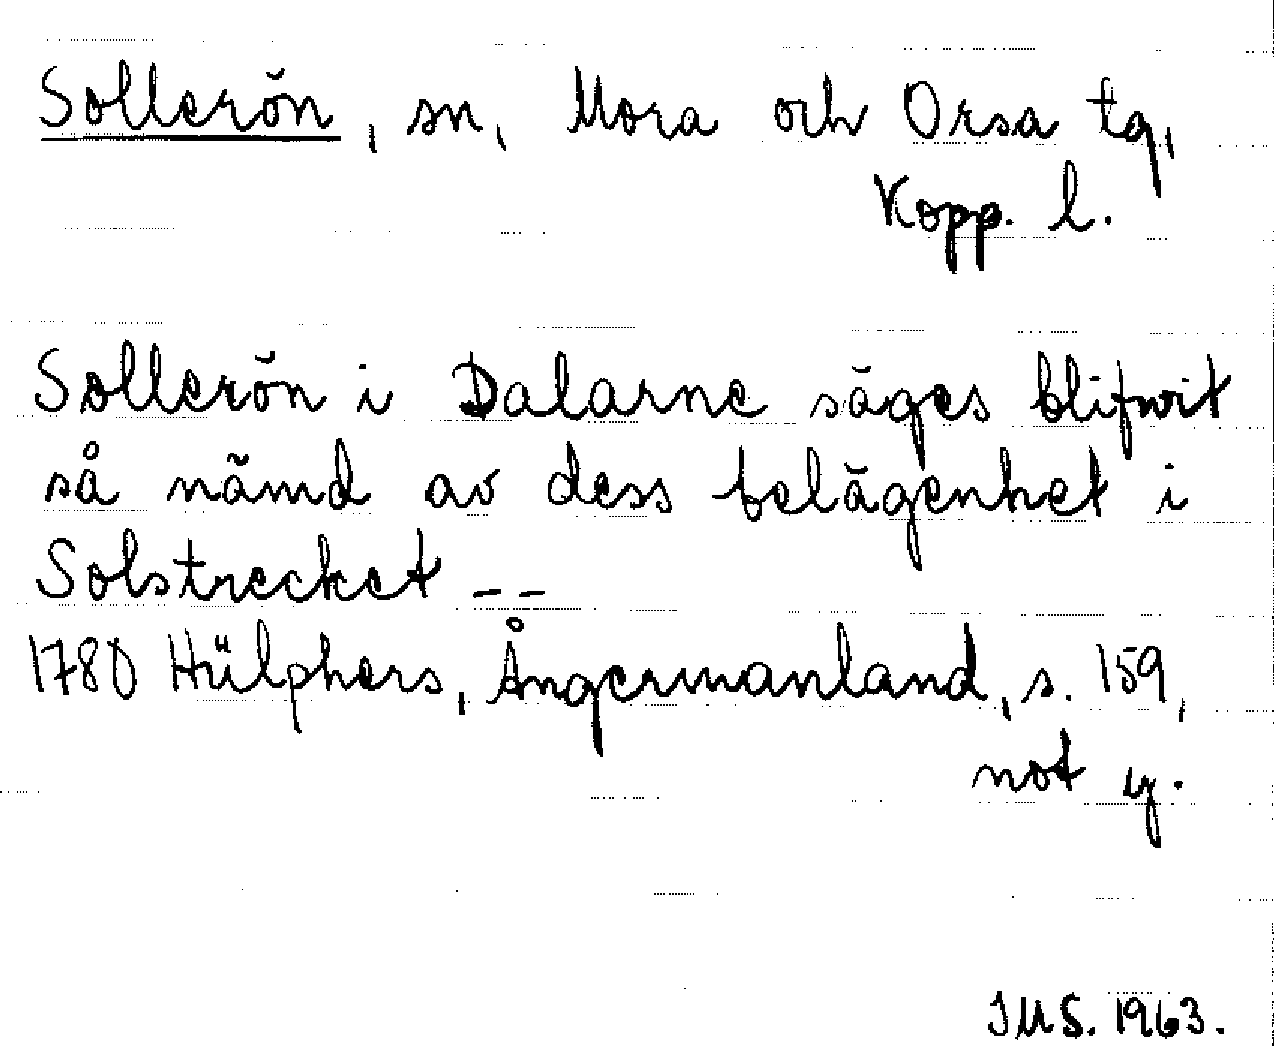 Sollerön, sn, Mora och Orsa tg,
Kopp. l.
Sollerön i Dalarne säges blifwit
så nämd av dess belägenhet i
Solstrecket --
1780 Hülphers, Ångermanland, s. 159,
not y.
JMS. 1963.